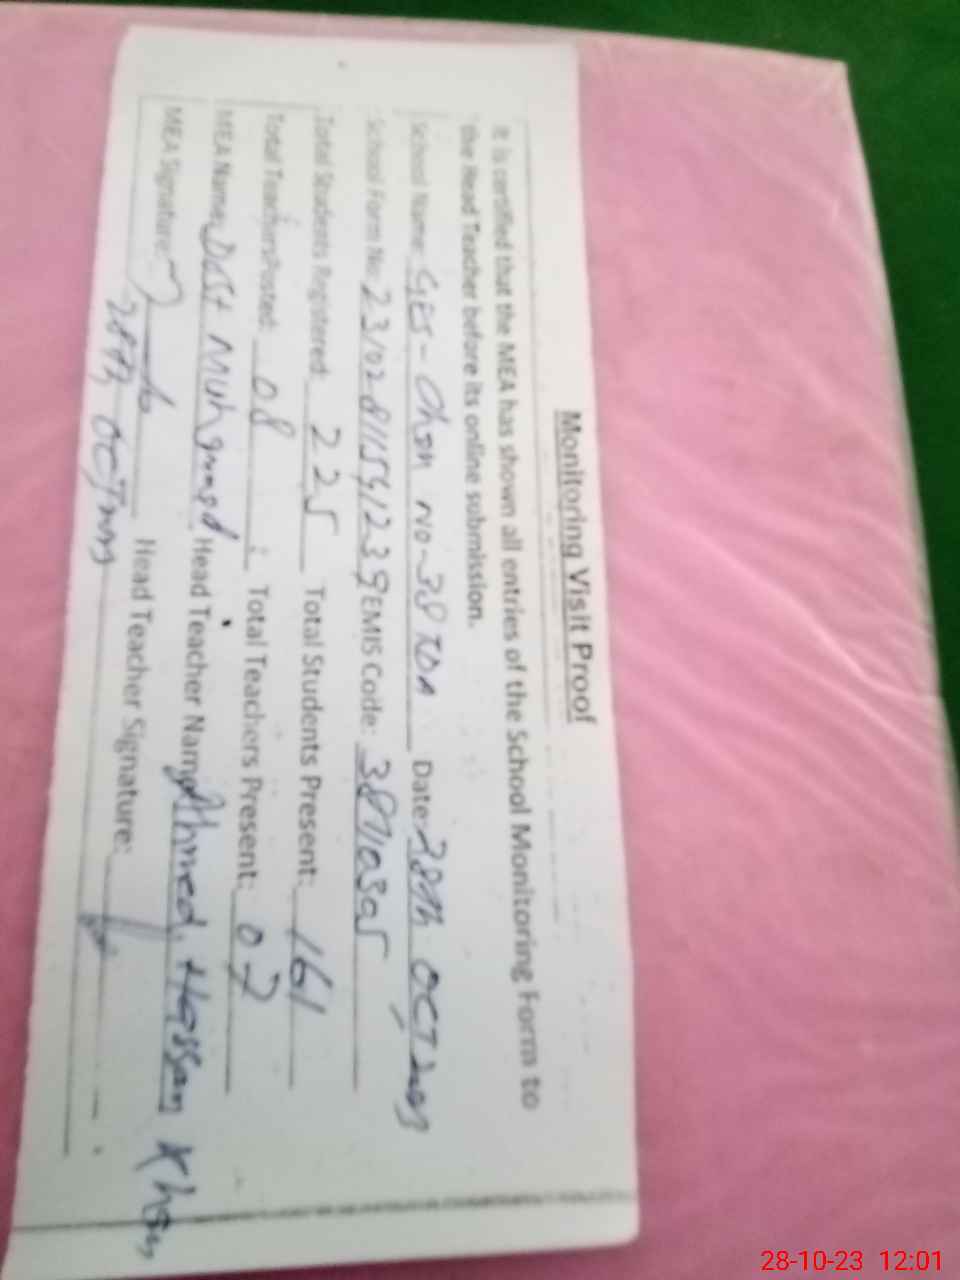 Monitoring Visit Proof
It is certified that the MEA has shown all entries of the School Monitoring Form to
the Head Teacher before its online submission.
School Name: GES- No-38 TDA Date: 28th OCT 2023
School Form No: EMIS Code:
Total Students Registered: 225 Total Students Present: 161
Total Teachers Posted: 08 Total Teachers Present: 07
MEA Name: Dost Muhammad Head Teacher Name Ahmed Hassan Khan
MEA Signature: Head Teacher Signature:
28th OCT 2023
28-10-23 12:01